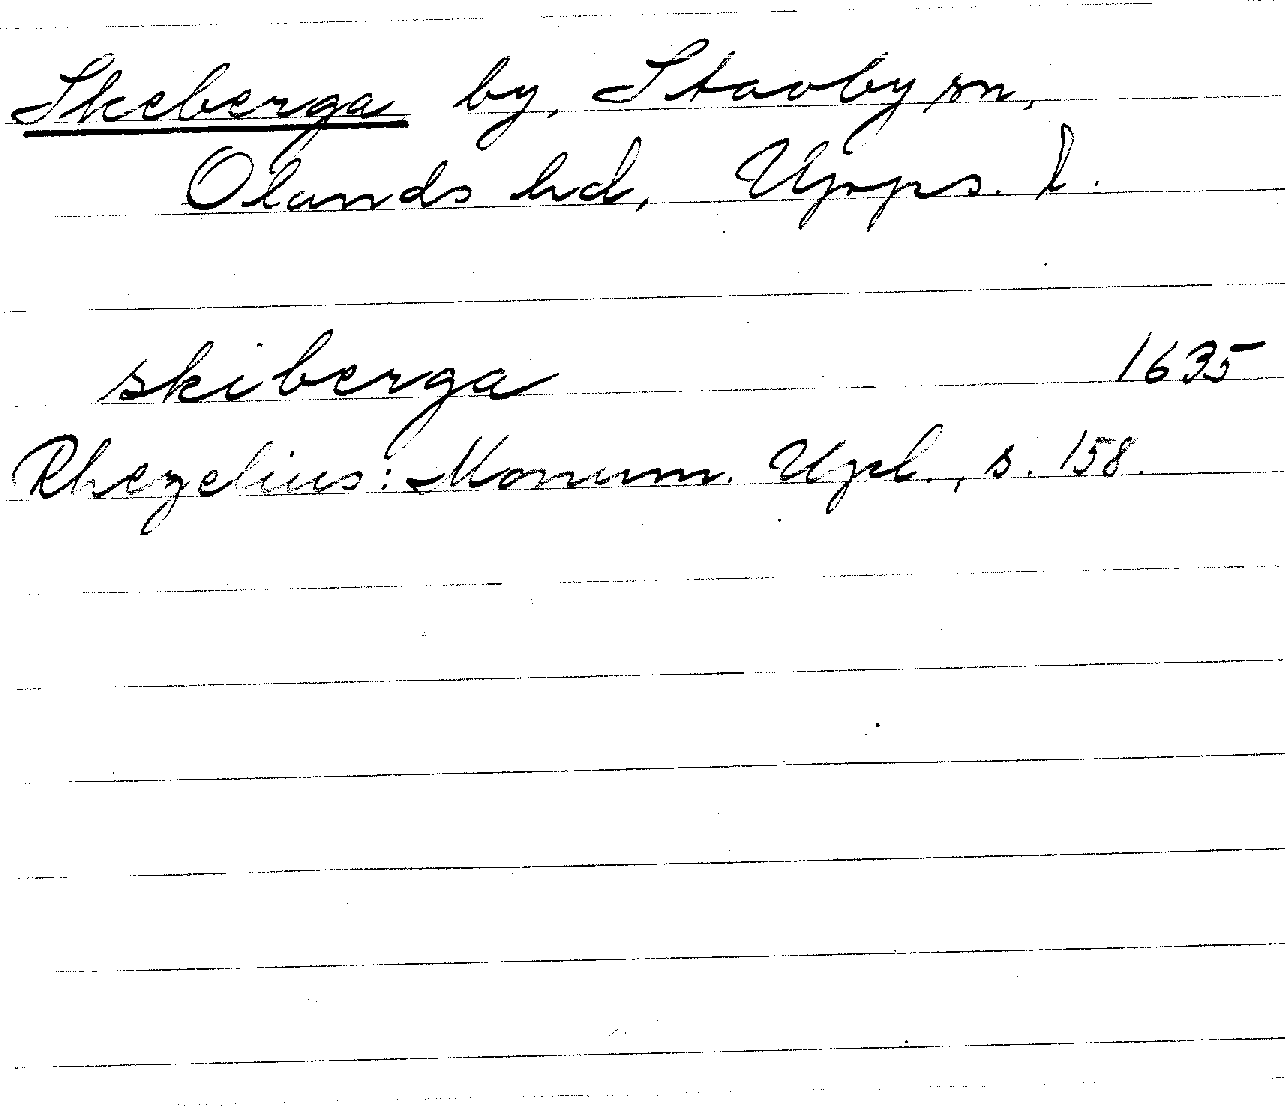 Skeberga by, Stavby sn,
Olands hd, Upps. l.
skiberga 1635
Rhezelius: Monum. Upl., s. 158.